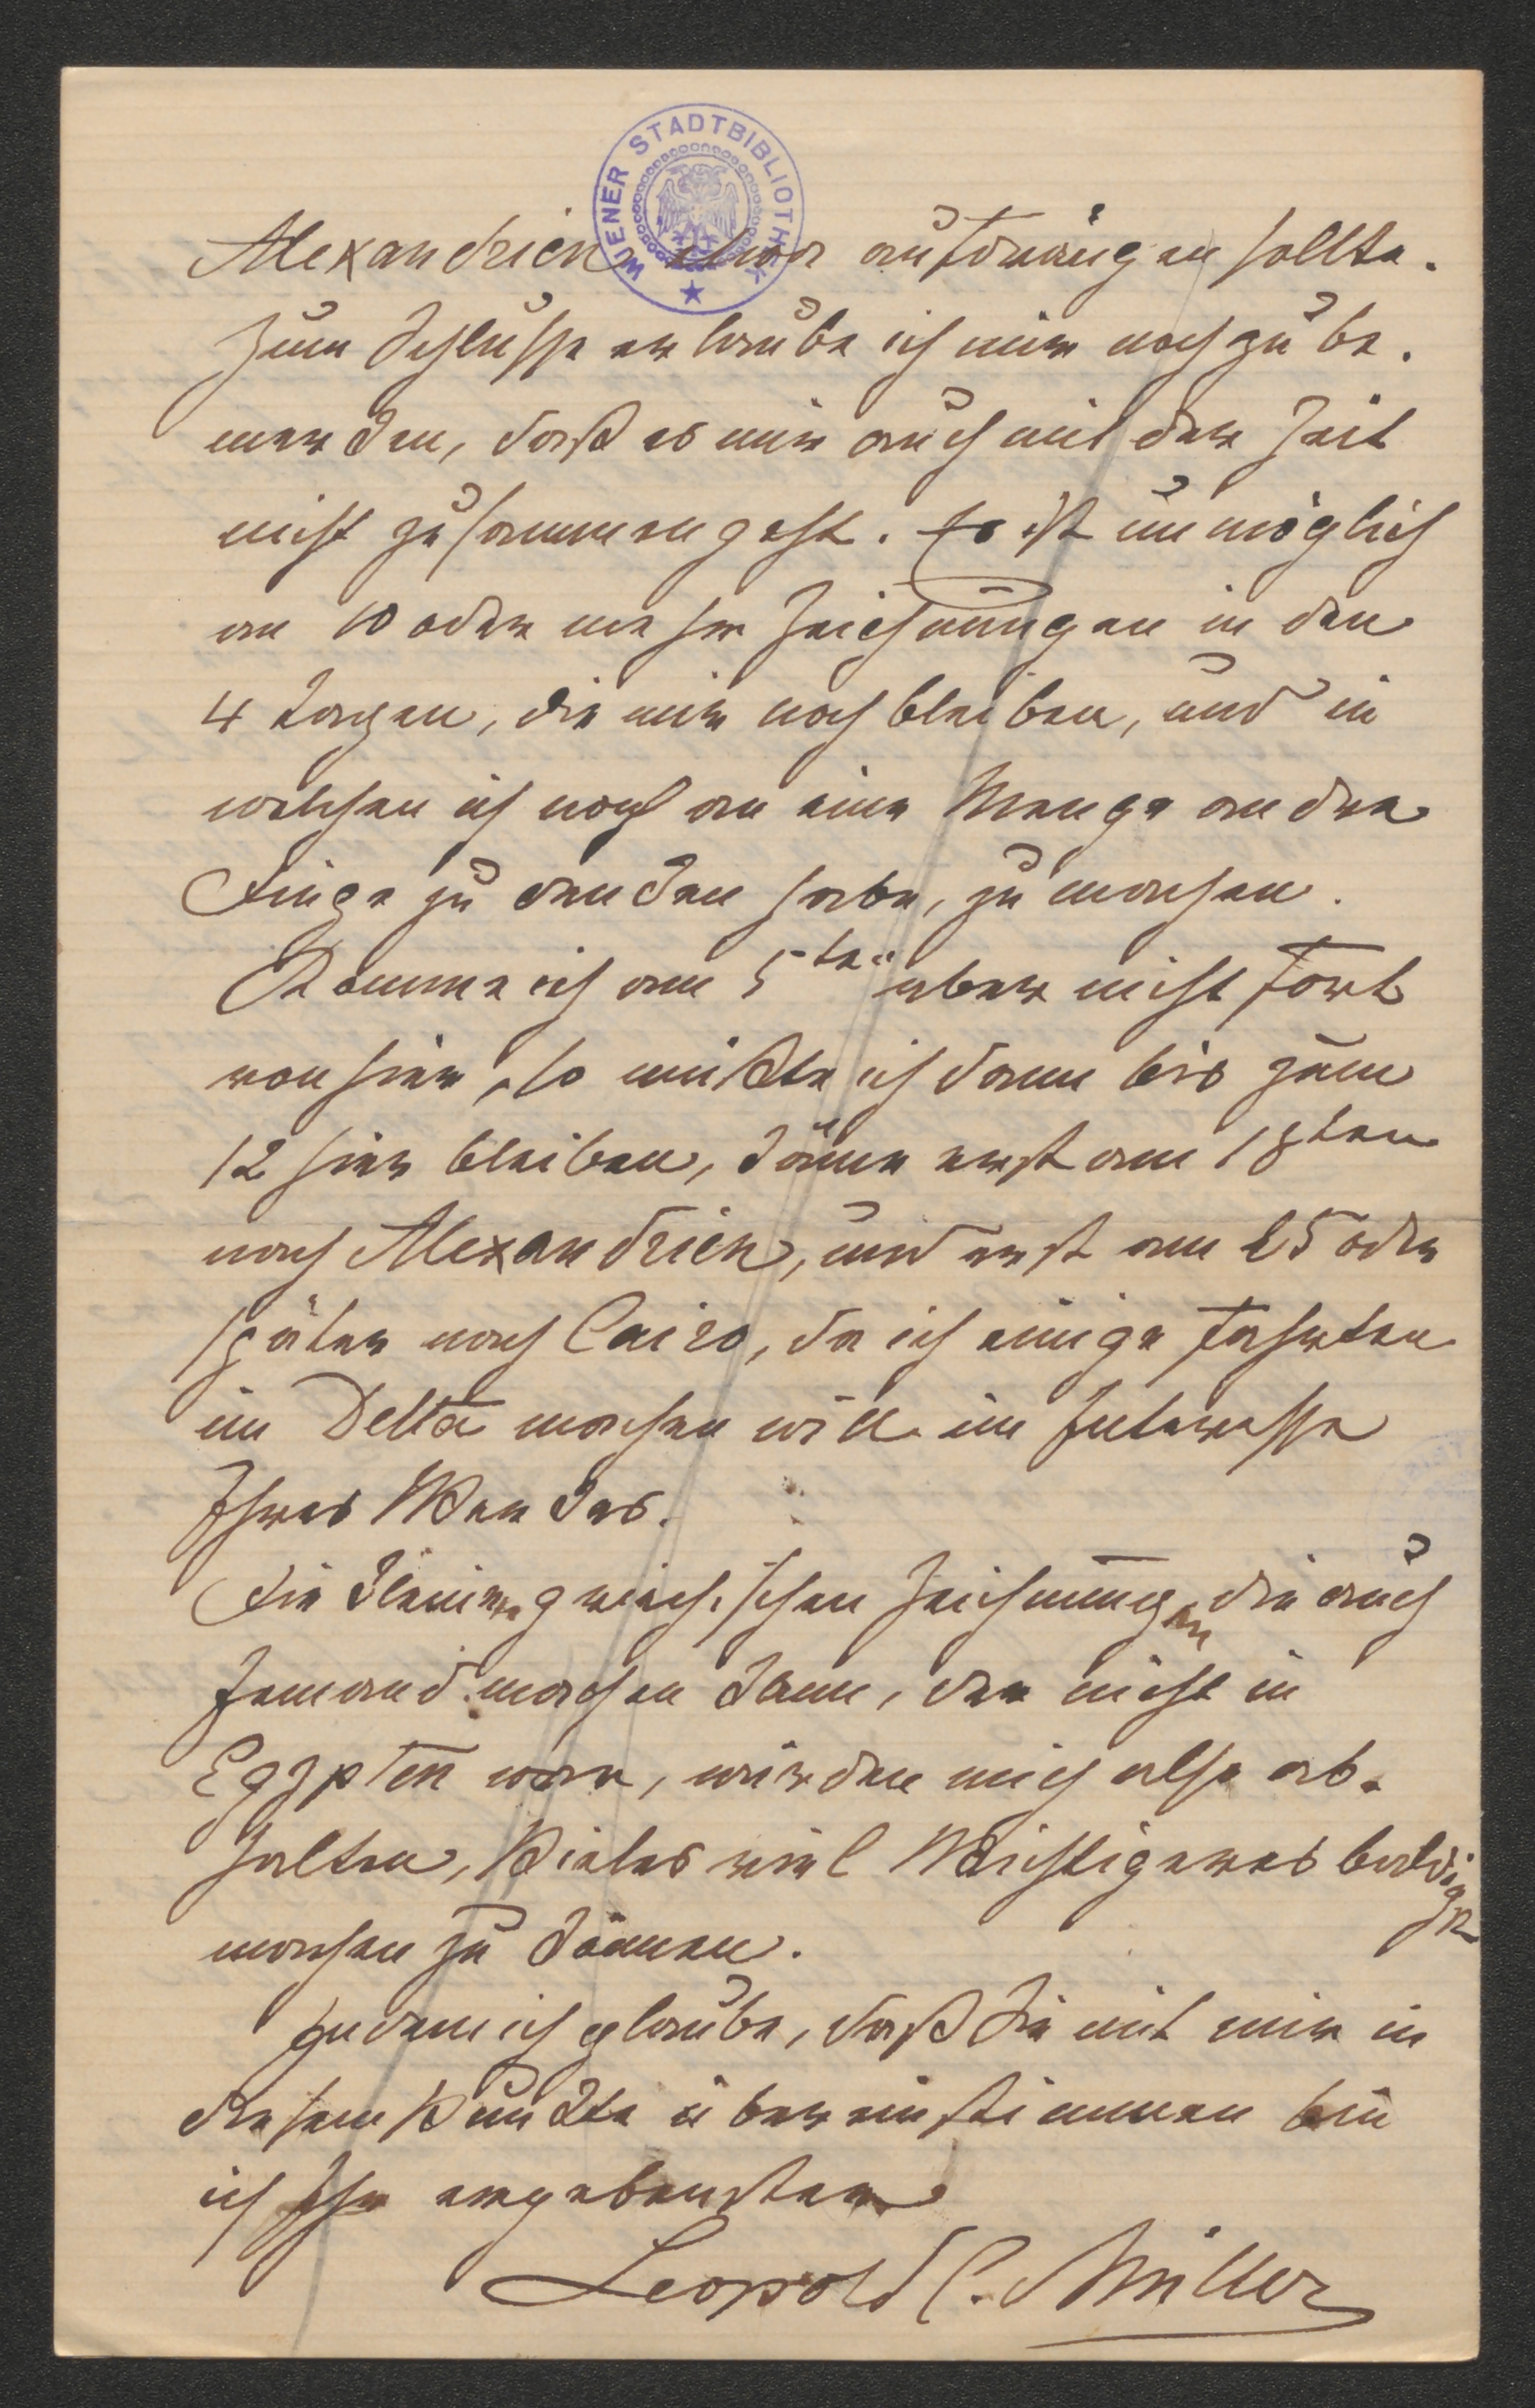 WIENER STADTBIBLIOTHEK
Alexandrien etwa aufdrängen sollte.
Zum Schlusse erlaube ich mir noch zu be-
merken, daß es mir auch mit der Zeit
nicht zusammengeht. Es ist unmöglich
an 10 oder mehr Zeichnungen in den
4 Tagen, die mir noch bleiben, und in
welchen ich noch an eine Menge andre
Dinge zu denken habe, zu machen.
Komme ich am 5ten aber nicht fort
von hier, so müßte ich dann bis zum
12 hier bleiben, käme erst am 18ten
nach Alexandrien, und erst am 25 oder
später nach Cairo, da ich einige Fahrten
im Delta machen will im Interesse
Ihres Werkes.
Die kleinen griechischen Zeichnungen die auch
Jemand machen kann, der nicht in
Egypten war, würden mich also ab-
halten, Vieles viel Wichtigeres
machen zu können.
Indem ich glaube, daß Sie mit mir in
diesem Punkte übereinstimmen bin
ich Ihr ergebenster
Leopold C. Müller